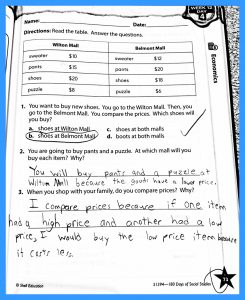 WEEK 12
DAY
4
Name: Date:
Directions: Read the table. Answer the questions.
Wilton Mall
sweater $10
pants $15
shoes $20
puzzle $8
Belmont Mall
sweater $12
pants $20
shoes $18
puzzle $6
Economics
1. You want to buy new shoes. You go to the Wilton Mall. Then, you
go to the Belmont Mall. You compare the prices. Which shoes will
you buy?
a. shoes at Wilton Mall c. shoes at both malls
b. shoes at Belmont Mall d. boots at both malls
2. You are going to buy pants and a puzzle. At which mall will you
buy each item? Why?
You will buy pants and a puzzle at
Wilton Mall because the goods have a lower price.
3. When you shop with your family, do you compare prices? Why?
I compare prices because if one item
had a high price and another had a low
price, I would buy the low price item because
it costs less.
© Shell Education
51394—180 Days of Social Studies